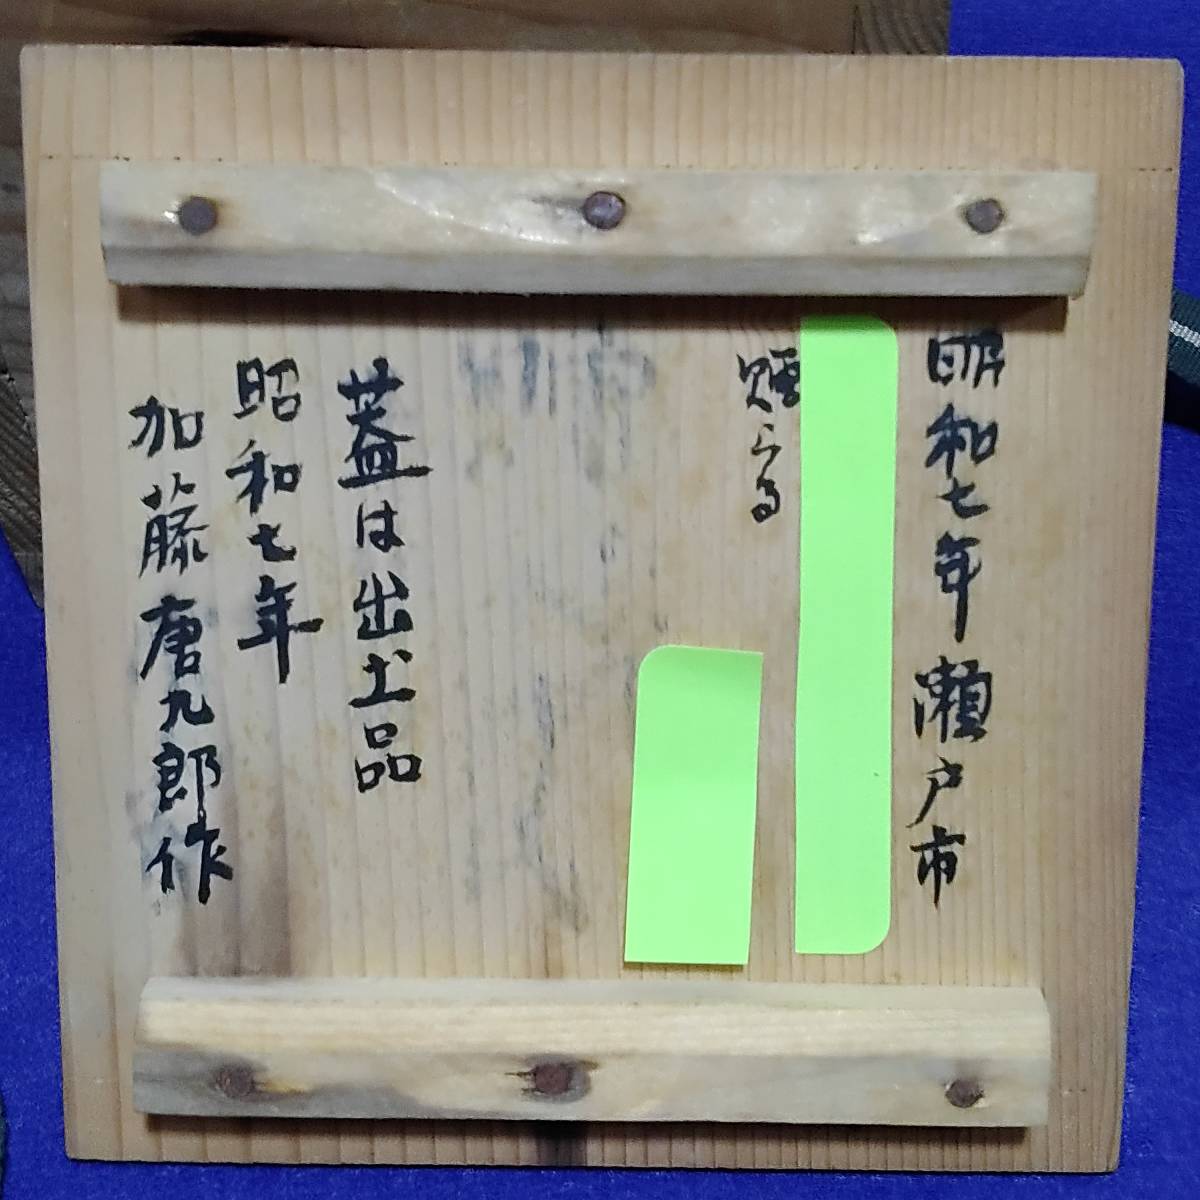 昭和七年瀬戸市
贈らる
蓋は出土品
昭和七年
加藤唐九郎作